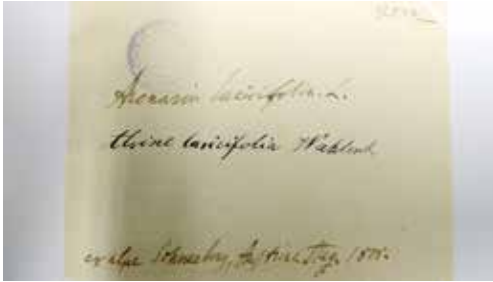 Arenaria laricifolia L.
Alsine laricifolia Wahlenb.
ex alpe Schneeberg, Austriae,